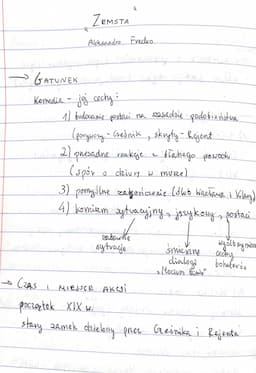 ZEMSTA
Aleksandra Fredro
→ GATUNEK
Komedia - jej cechy:
1) budowanie postaci na zasadzie podobieństwa
(porywczy - Cześnik, skryty - Rejent
2) przesadne reakcje z błahego powodu
(spór o dziurę w murze)
3) pomyślne zakończenie (ślub Wacława i Klary)
4) komizm sytuacyjny, językowy, postaci
zabawne
sytuacje
śmieszne
dialogi
wyolbrzymione
cechy
bohaterów
→ CZAS I MIEJSCE AKCJI
początek XIX w.
stary zamek dzielony przez Cześnika i Rejenta